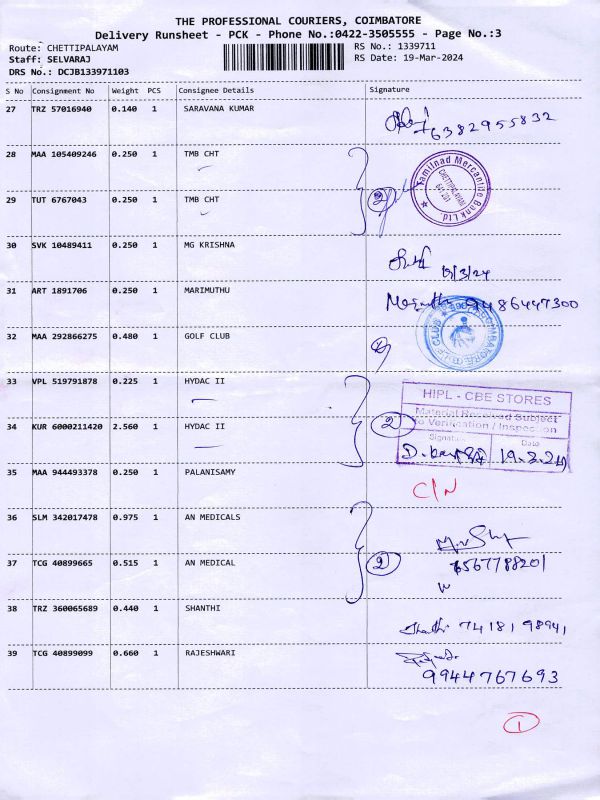 THE PROFESSIONAL COURIERS, COIMBATORE
Delivery Runsheet - PCK - Phone No.:0422-3505555 - Page No.:3
Route: CHETTIPALAYAM RS No.: 1339711
Staff: SELVARAJ RS Date: 19-Mar-2024
DRS No.: DCJB133971103
S No Consignment No Weight PCS Consignee Details Signature
27 TRZ 57016940 0.140 1 SARAVANA KUMAR
6382955832
28 MAA 105409246 0.250 1 TMB CHT
Tamilnad Mercantile Bank Ltd.
CHETTIPALAYAM
641 201
29 TUT 6767043 0.250 1 TMB CHT
2
30 SVK 10489411 0.250 1 MG KRISHNA
19/3/24
31 ART 1891706 0.250 1 MARIMUTHU
9486447300
32 MAA 292866275 0.480 1 GOLF CLUB
COIMBATORE GOLF CLUB
33 VPL 519791878 0.225 1 HYDAC II
HIPL - CBE STORES
Material Received Subject
to Verification / Inspection
Signature Date
34 KUR 6000211420 2.560 1 HYDAC II
2
19.3.24
35 MAA 944493378 0.250 1 PALANISAMY
C/N
36 SLM 342017478 0.975 1 AN MEDICALS
37 TCG 40899665 0.515 1 AN MEDICAL
2
38 TRZ 360065689 0.440 1 SHANTHI
Shanthi 74181 98941
39 TCG 40899099 0.660 1 RAJESHWARI
9944767693
1